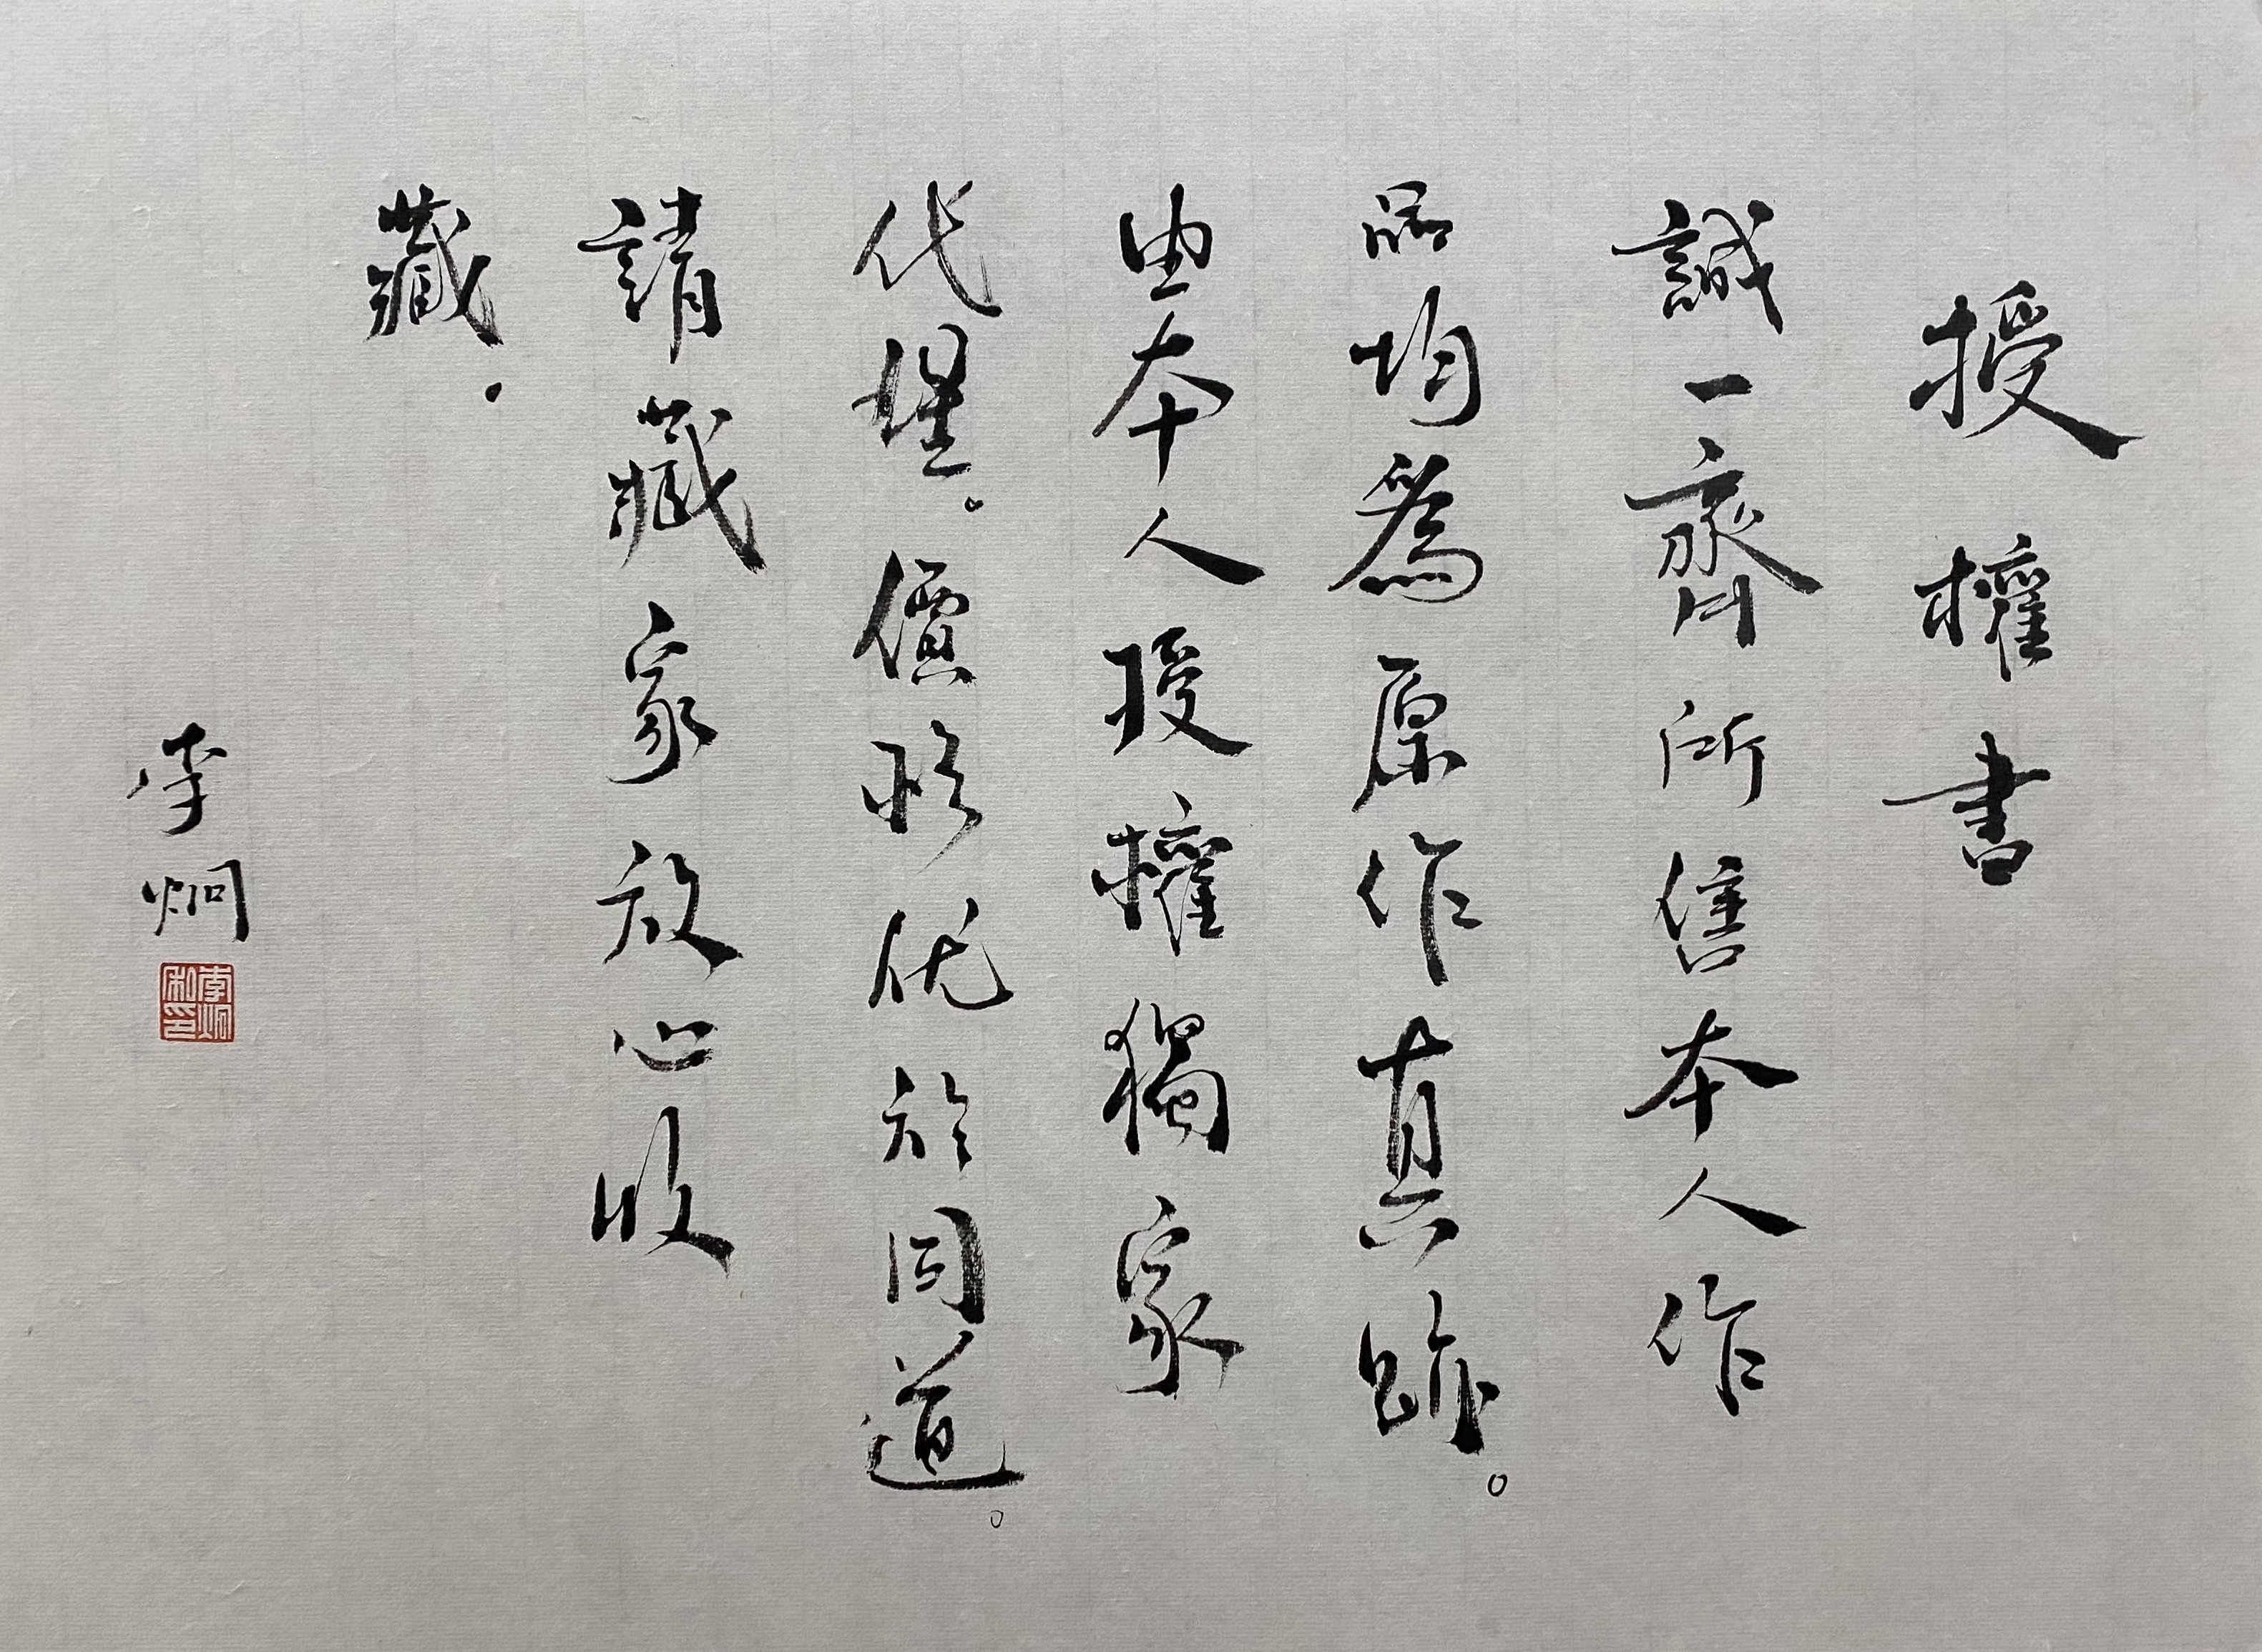 授權書
誠一齋所售本人作
品均為原作真跡。
由本人授權獨家
代理。價格优於同道。
請藏家放心收
藏.
李炯
李炯私印